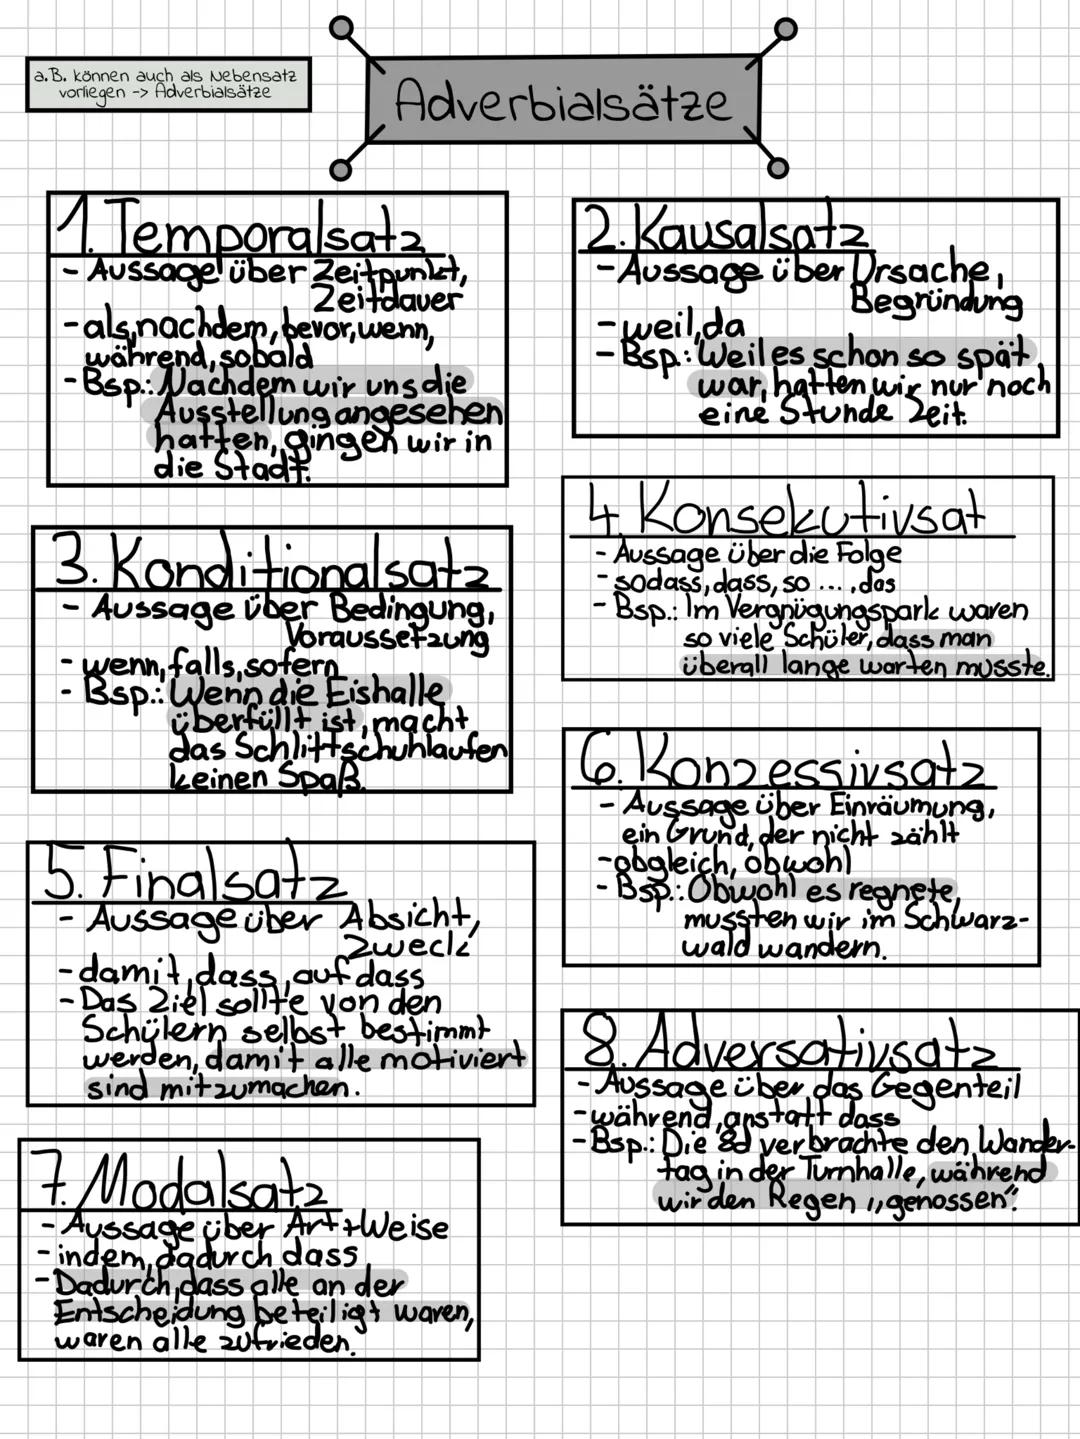 a.B. können auch als Nebensatz
vorliegen -> Adverbialsätze
Adverbialsätze
1. Temporalsatz
- Aussage über Zeitpunkt,
Zeitdauer
- als, nachdem, bevor, wenn,
während, sobald
- Bsp.: Nachdem wir uns die
Ausstellung angesehen
hatten, gingen wir in
die Stadt.
2. Kausalsatz
- Aussage über Ursache,
Begründung
- weil, da
- Bsp.: Weil es schon so spät
war, hatten wir nur noch
eine Stunde Zeit.
3. Konditionalsatz
- Aussage über Bedingung,
Voraussetzung
- wenn, falls, sofern
- Bsp.: Wenn die Eishalle
überfüllt ist, macht
das Schlittschuhlaufen
keinen Spaß.
4. Konsekutivsat
- Aussage über die Folge
- sodass, dass, so ..., das
- Bsp.: Im Vergnügungspark waren
so viele Schüler, dass man
überall lange warten musste.
5. Finalsatz
- Aussage über Absicht,
Zweck
- damit, dass, auf dass
- Das Ziel sollte von den
Schülern selbst bestimmt
werden, damit alle motiviert
sind mitzumachen.
6. Konzessivsatz
- Aussage über Einräumung,
ein Grund, der nicht zählt
- obgleich, obwohl
- Bsp.: Obwohl es regnete,
mussten wir im Schwarz-
wald wandern.
7. Modalsatz
- Aussage über Art+Weise
- indem, dadurch dass
- Dadurch, dass alle an der
Entscheidung beteiligt waren,
waren alle zufrieden.
8. Adversativsatz
- Aussage über das Gegenteil
- während, anstatt dass
- Bsp.: Die 8d verbrachte den Wander-
tag in der Turnhalle, während
wir den Regen „genossen“.